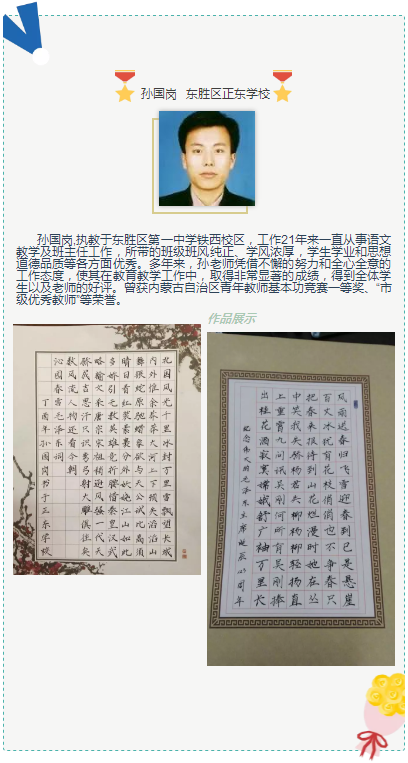 孙国岗 东胜区正东学校
孙国岗,执教于东胜区第一中学铁西校区，工作21年来一直从事语文
教学及班主任工作，所带的班级班风纯正、学风浓厚，学生学业和思想
道德品质等各方面优秀。多年来，孙老师凭借不懈的努力和全心全意的
工作态度，使其在教育教学工作中，取得非常显著的成绩，得到全体学
生以及老师的好评。曾获内蒙古自治区青年教师基本功竞赛一等奖、“市
级优秀教师”等荣誉。
作品展示
北国风光千里冰封万里雪飘望长城
内外惟余莽莽大河上下顿失滔滔山
舞银蛇原驰蜡象欲与天公试比高须
晴日看红装素裹分外妖娆江山如此
多娇引无数英雄竞折腰惜秦皇汉武
略输文采唐宗宋祖稍逊风骚一代天
骄成吉思汗只识弯弓射大雕俱往矣
数风流人物还看今朝
沁园春雪毛泽东词
丁酉年孙国岗书于正东学校
风雨送春归飞雪迎春到已是悬崖
百丈冰犹有花枝俏俏也不争春只
把春来报待到山花烂漫时她在丛
中笑我失骄杨君失柳杨柳轻扬直
上重霄九问讯吴刚何所有吴刚捧
出桂花酒寂寞嫦娥舒广袖万里长